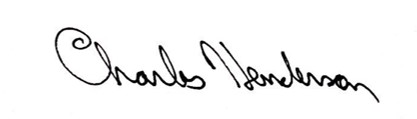 Charles Henderson